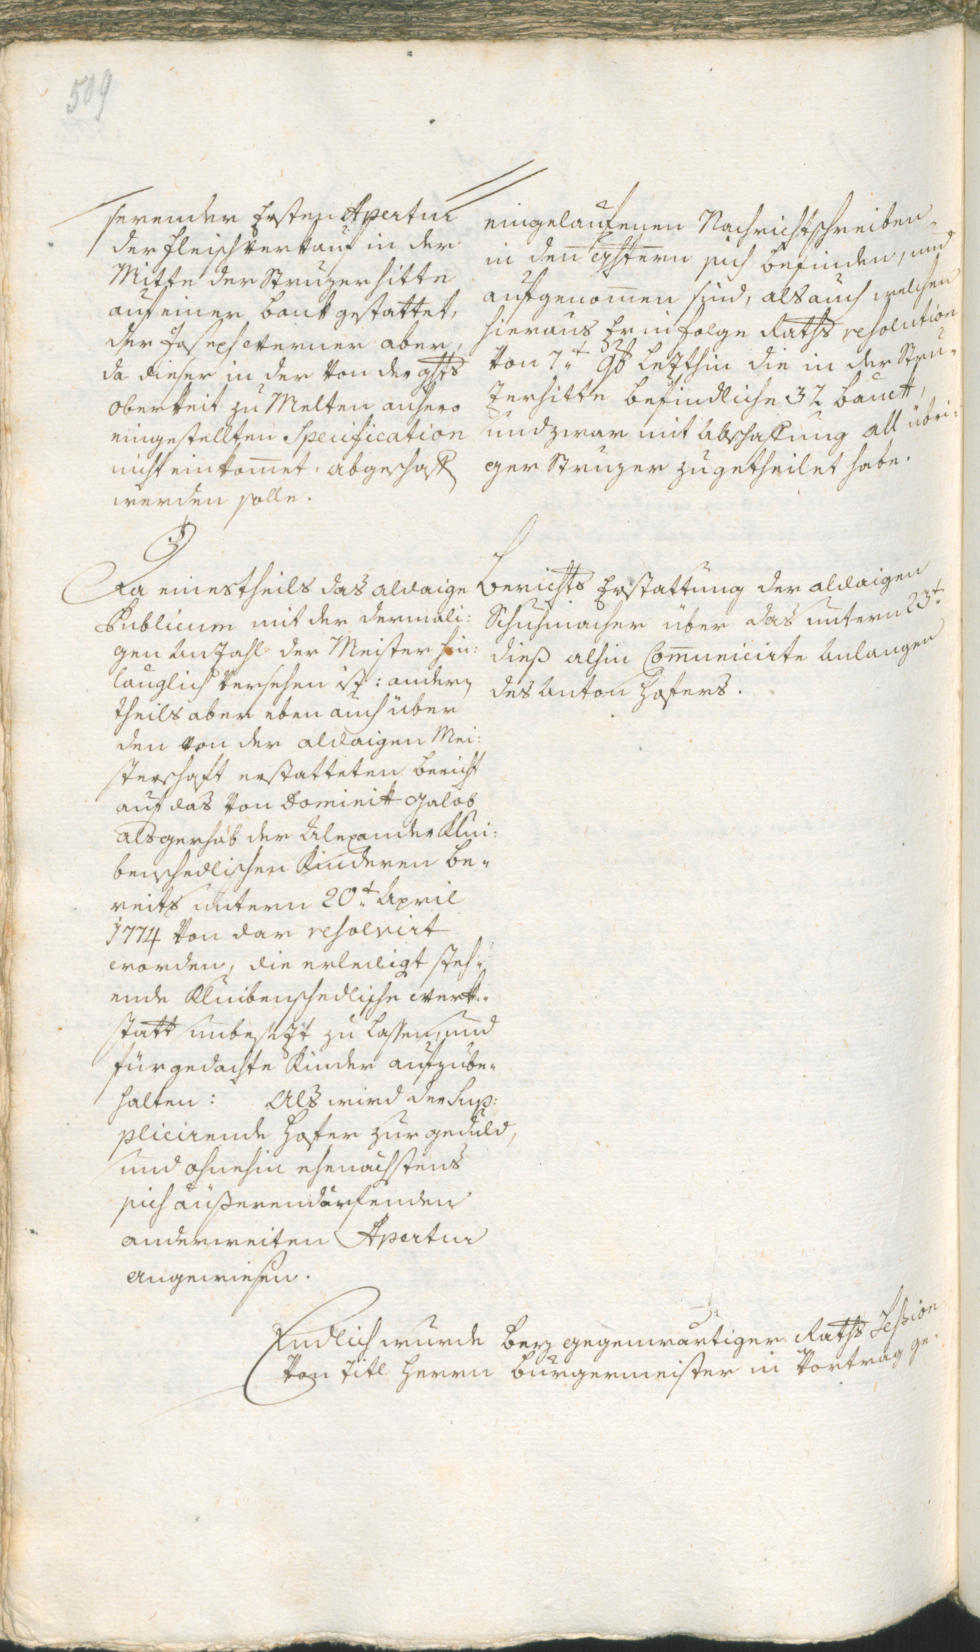 509
serender Ersten Apertur
der Fleischverkauf in der
Mitte der Struzerhitte
auf einer Bank gestattet,
der Joseph Werner aber,
da dieser in der von der ghts
Oberkeit zu Melten anhero
eingestellten Specification
nicht einkom̅et, abgeschaft
werden solle.
Da einestheils das aldaige
Publicum mit der dermali:
gen Anzahl der Meister hin:
länglich versehen ist: andern
theils aber eben auch über
den von der aldaigen Mei:
sterschaft erstatteten bericht
auf das von Dominik Galob
als gerhab der Alexander Klui:
benschedlischen Kinderen be-
reits untern 20t April
1774 von dar resolvirt
worden, die erledigt steh-
ende Kluibenschedlische Werk-
statt unbesezt zu lassen, und
für gedachte Kinder aufzube-
halten: Als wird der Sup:
plicirende Hofer zur geduld,
und ohnehin ehenächstens
sich äußerendärfenden
anderweiten Apertur
angewiesen.
eingelaufenen Nachrichtschreiben
in den sich befinden, und
aufgenom̅en sind, als auch welchen
hieraus Er in folge Raths resolution
von 7t letzthin die in der Stru-
zerhitte befindliche 32 Banck,
und zwar mit Abschaffung all übri:
ger Struzer zugetheilet habe.
Berichts Erstattung der aldaigen
Schuhmacher über das untern 23t
dieß alhin Com̅unicirte Anlangen
des Anton Hofers.
Endlich wurde bey gegenwärtiger Raths Session
von Titl Herrn Burgermeister in Vortrag ge-